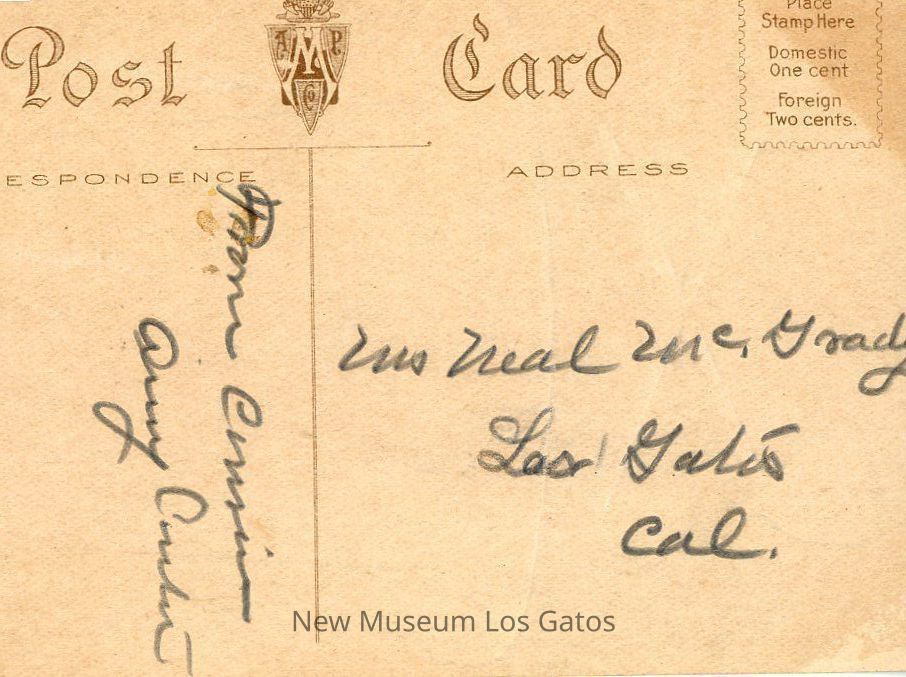 Post Card
A P
M
Co
Place
Stamp Here
Domestic
One cent
Foreign
Two cents.
ESPONDENCE
ADDRESS
From
Amy
Mrs Neal Mc. Grady
Los Gatos
Cal.
New Museum Los Gatos